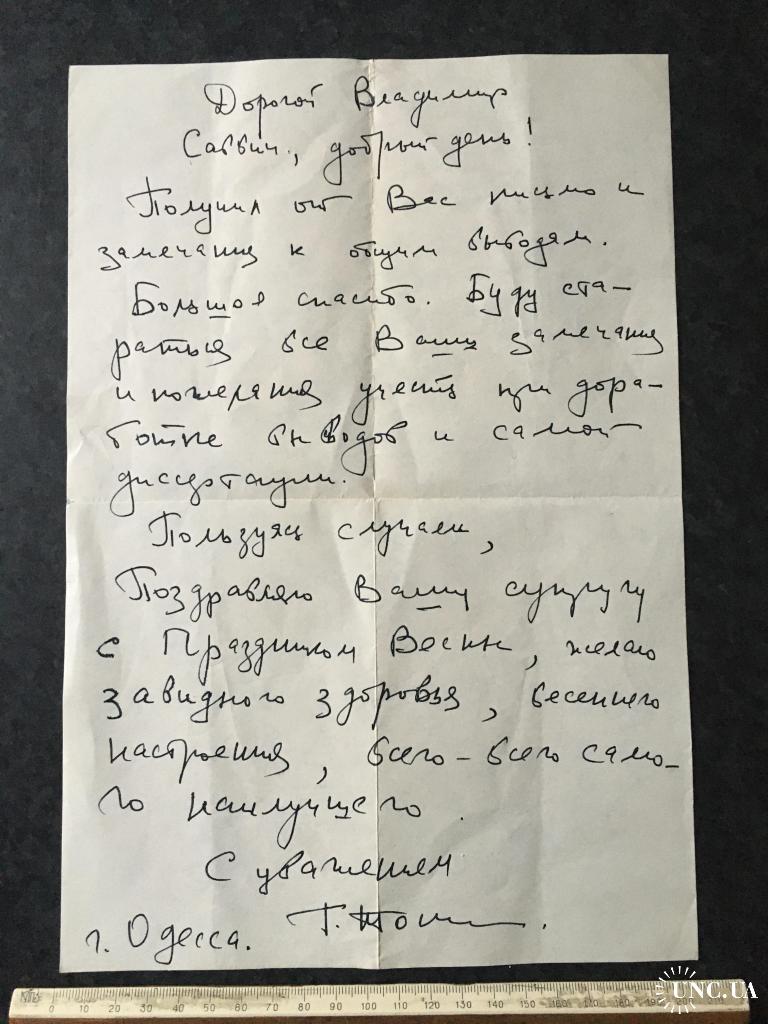 Дорогой Владимир
Саввич, добрый день!
Получил от Вас письмо и
замечания к общим выводам.
Большое спасибо. Буду ста-
раться все Ваши замечания
и пожелания учесть при дора-
ботке выводов и самой
диссертации.
Пользуясь случаем,
Поздравляю Вашу супругу
с Праздником Весны, желаю
завидного здоровья, весеннего
настроения, всего-всего само-
го наилучшего.
С уважением
г. Одесса.
0 10 20 30 40 50 60 70 80 90 100 110 120 130 140 150 160 170 180 190
UNC.UA